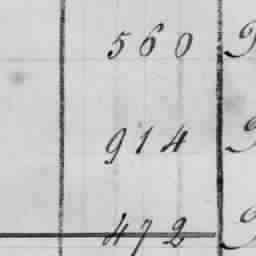 560
914
472